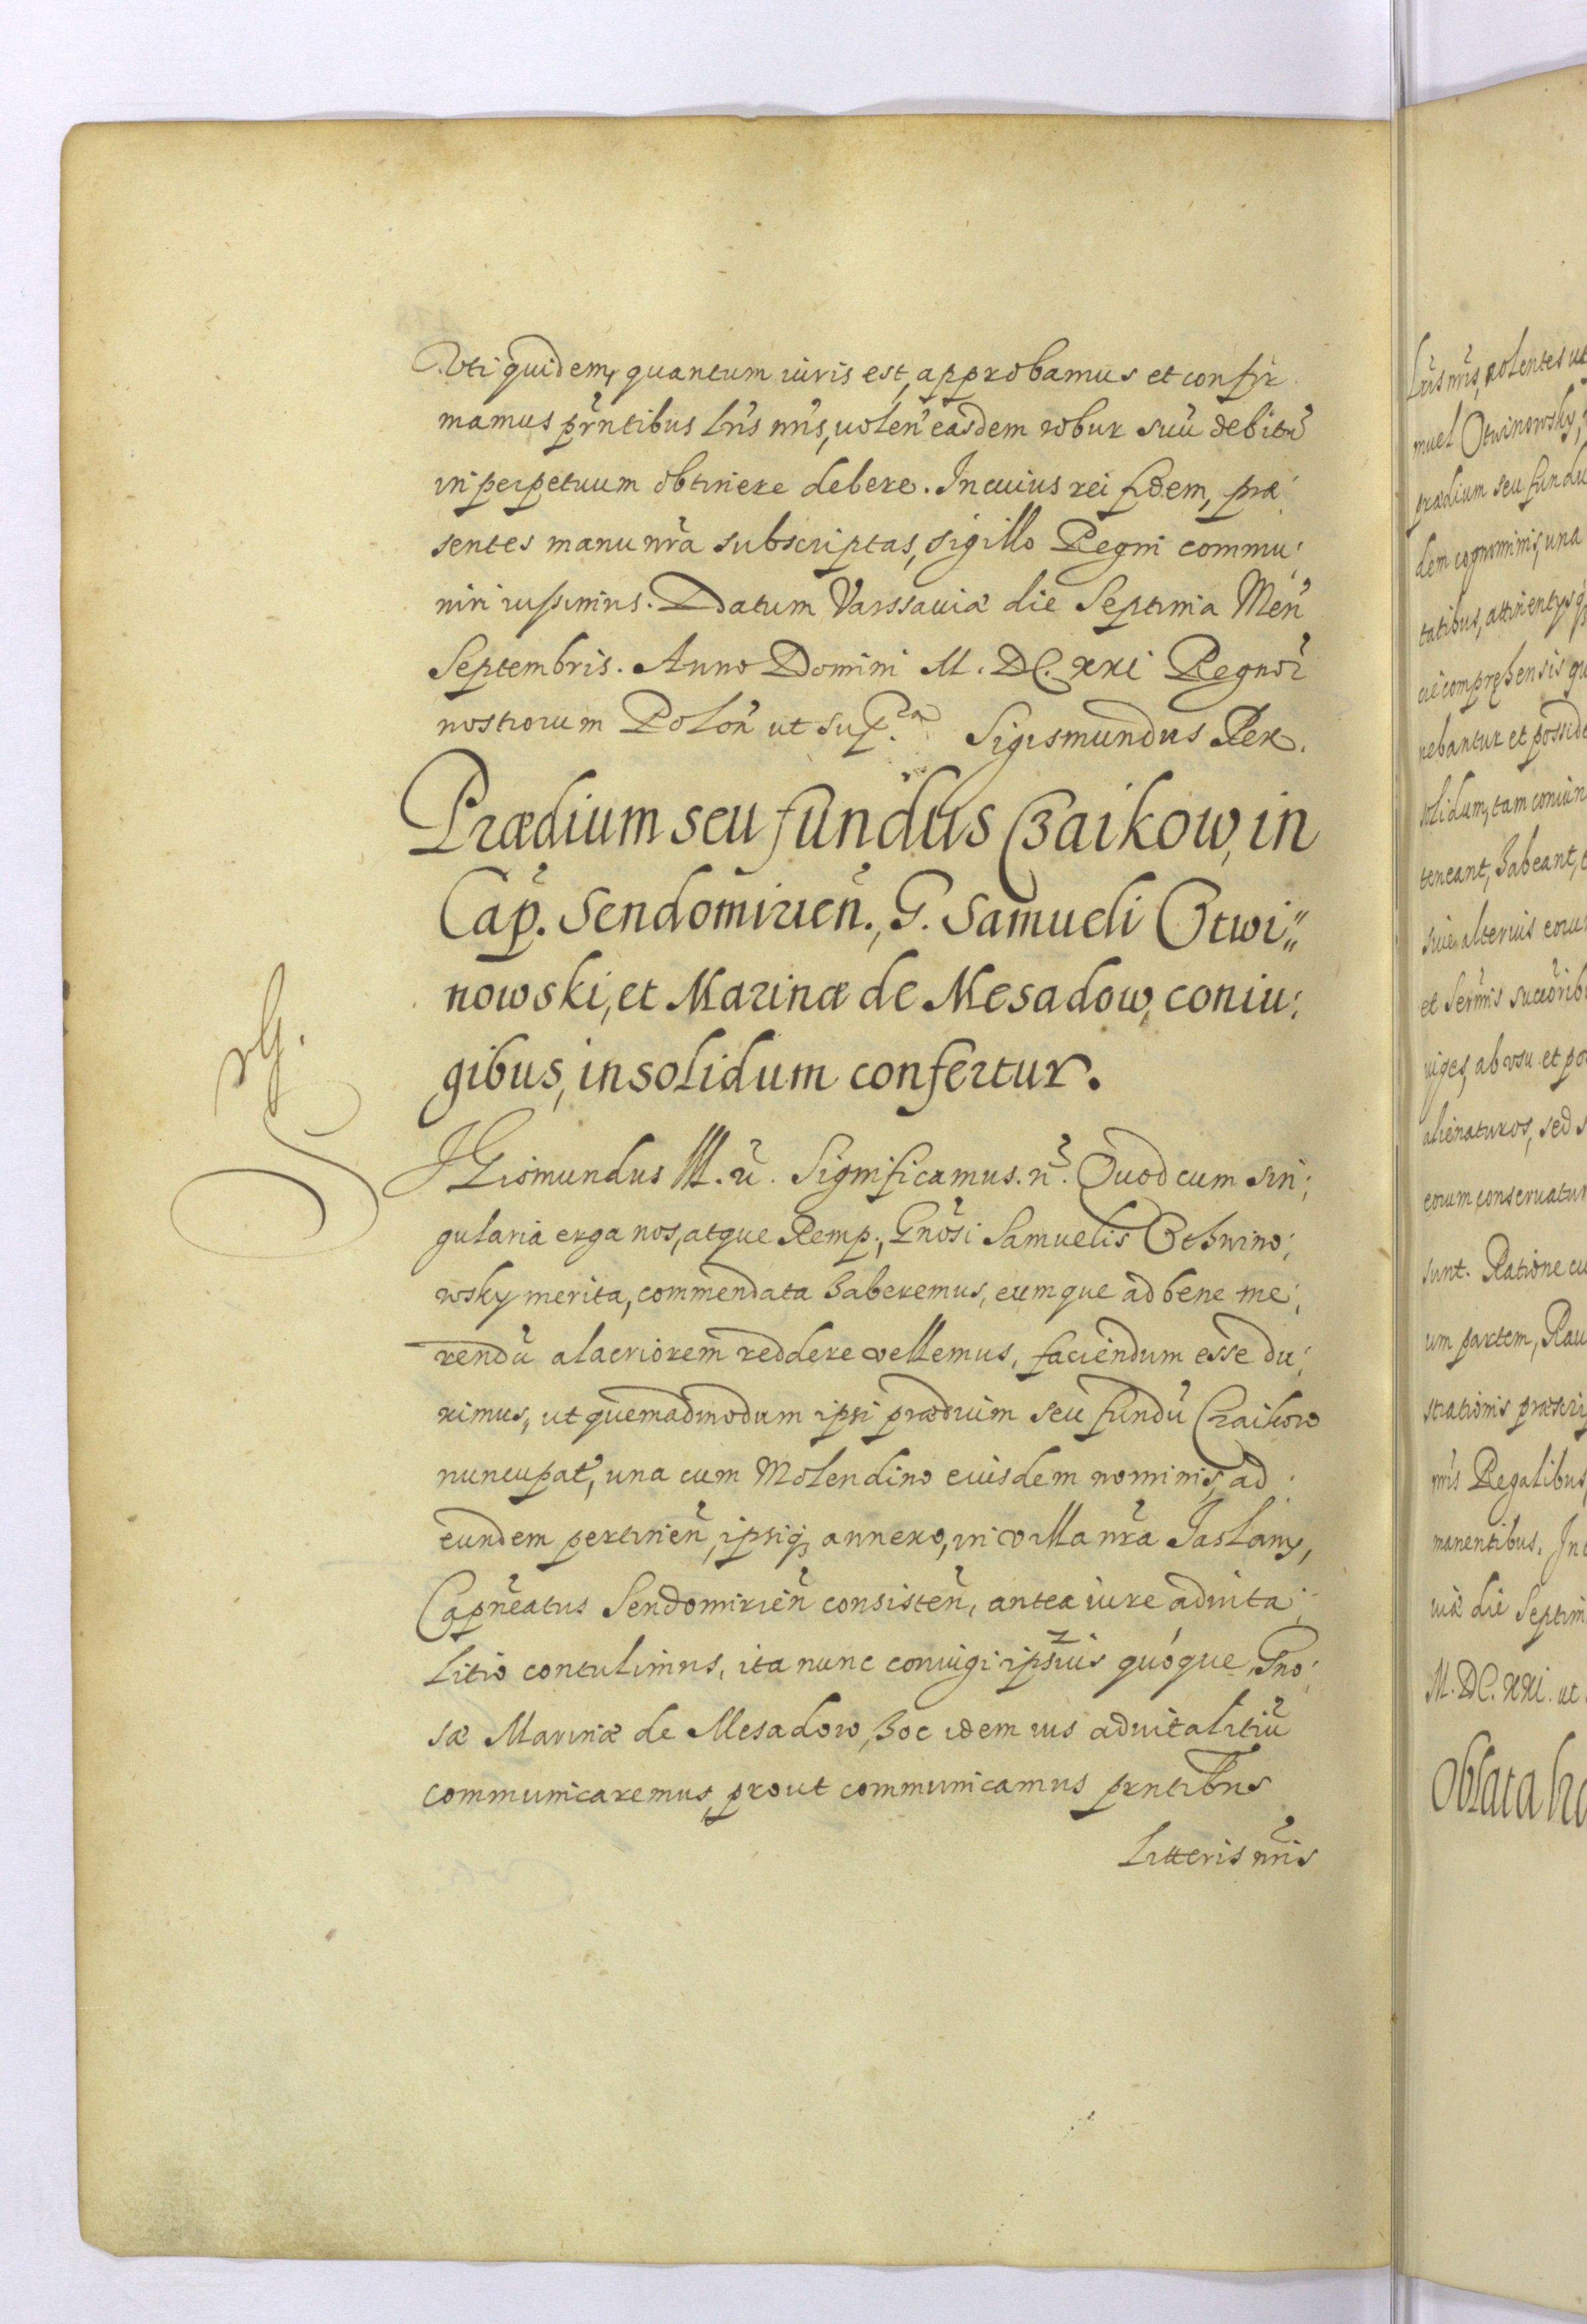 Uti quidem, quantum iuris est, approbamus et confir
mamus pr̃ntibus lr̃is nr̃is, uolen̄ easdem robur suũ debitũ
in perpetuum obtinere debere. In cuius rei fidem, præ:
sentes manu nr̃a subscriptas, sigillo Regni commu:
niri iussimus. Datum Varssauiæ die Septima Men̄
Septembris. Anno Domini M.DC.XXI Regnor̃
nostrorum Polon̄ ut sup.ra Sigismundus Rex.
Prædium seu fundus Czaikow, in
Cap̃. Sendomirien̄., G. Samueli Otwi"
nowski, et Marinæ de Mesadow, coniu:
gibus, in solidum confertur.
SIGismundus III. ũ. Significamus. ñ. Quod cum sin:
gularia erga nos, atque Remp., Gnõsi Samuelis Othwino:
wsky merita, commendata haberemus, eumque ad bene me:
rendũ alacriorem reddere vellemus, faciendum esse du:
ximus, ut quemadmodum ipsi prædium seu fundũ Czaikow
nuncupat̃, una cum Molendino eiusdem nominis, ad
eundem pertinen̄, ipsiq; annexo, in villa nr̃a Jaslany,
Capñeatus Sendomirien̄ consisten̄, antea iure aduita:
litio contulimus, ita nunc coniugi ipsius quóque Gno:
sæ Marinæ de Mesadow, hoc idem ius aduitalitiũ
communicaremus, prout communicamus prntibus
Litteris nr̃is
Lr̃is nr̃is, volentes ut
muel Otwinowsky,
prædium seu fundu
dem cognominis, una
tatibus, attinentys q;
cie comprehensis qu
nebantur et posside
solidum, tam coniun
teneant, habeant,
siue alterius eoru
et Serm̃is succõrib
iuges, ab usu et po
alienaturos, sed s
eorum conseruatur
sunt. Ratione cu
um partem, Rau
strationis præscri
nr̃is Regalibus,
manentibus. In
uiæ die Septim
M.DC.XXI. ut
Oblata